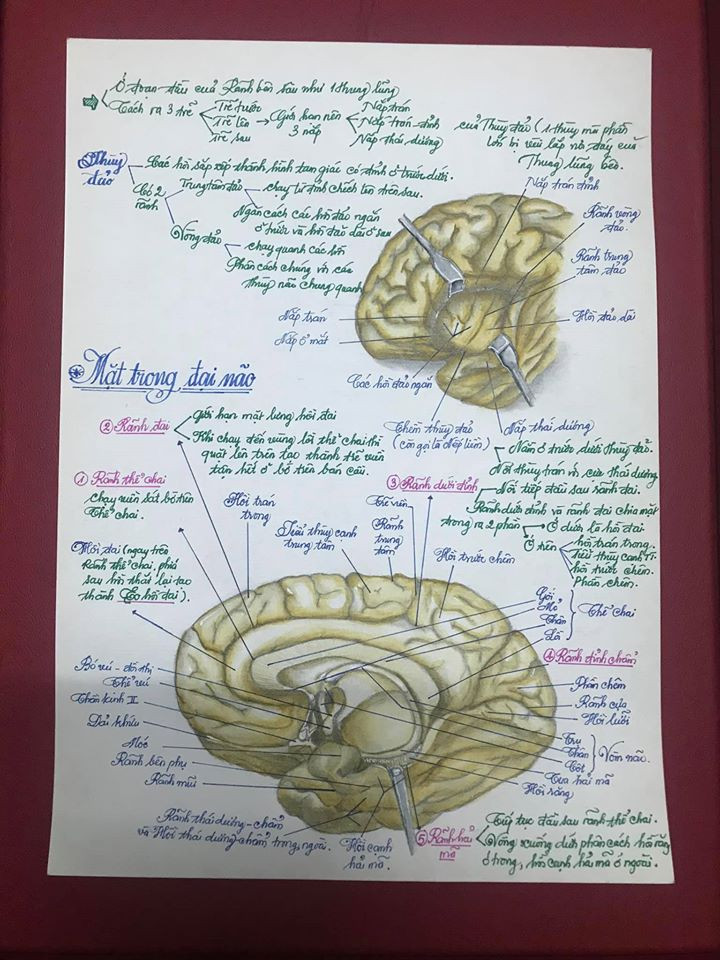 Ở đoạn đầu của Rãnh bên sâu như 1 thung lũng
Tách ra 3 trẽ
Trẽ trước
Trẽ lên
Trẽ sau
Giới hạn nên
3 nắp
Nắp trán
Nắp trán-đỉnh
Nắp thái dương
của Thùy đảo (1 thùy mà phần
lớn bị vùi lấp nó đáy của
Thung lũng bên.
Thùy
đảo
Các hồi sắp xếp thành hình tam giác có đỉnh ở trước dưới.
Có 2
rãnh
Trung tâm đảo
chạy từ đỉnh chếch lên trên sau.
Ngăn cách các hồi đảo ngắn
ở trước và hồi đảo dài ở sau
Vòng đảo
chạy quanh các hồi
Phân cách chúng với các
thùy não chung quanh
Nắp trán đỉnh
Rãnh vòng
đảo.
Rãnh trung
tâm đảo
Hồi đảo dài
Nắp trán
Nắp ổ mắt
Các hồi đảo ngắn
Thềm thùy đảo
(còn gọi là Nếp liềm)
Nắp thái dương
Nằm ở trước dưới thùy đảo.
Nối thùy trán với cực thái dương
Mặt trong đại não
② Rãnh đai
Giới hạn mặt lưng hồi đai
Khi chạy đến vùng lồi thể chai thì
quặt lên trên tạo thành trẽ viền
tận hết ở bờ trên bán cầu.
① Rãnh thể chai
chạy viền sát bờ trên
Thể chai.
Hồi đai (ngay trên
Rãnh thể chai, phía
sau hồi thắt lại tạo
thành Eo hồi đai).
③ Rãnh dưới đỉnh
Nối tiếp đầu sau rãnh đai.
Rãnh dưới đỉnh và rãnh đai chia mặt
trong ra 2 phần
Ở dưới là hồi đai
Ở trên
hồi trán trong.
Tiểu thùy cạnh TT
hồi trước chêm.
Phần chêm.
Hồi trán
trong
Tiểu thùy cạnh
trung tâm
Trẽ viền
Rãnh
trung
tâm
Hồi trước chêm
Gối
Mỏ
Thân
Lồi
Thể chai
④ Rãnh đỉnh chẩm
Phần chêm
Rãnh cựa
Hồi lưỡi
Trụ
Thân
Cột
Vòm não.
Tua hải mã
Hồi răng
Bó vú - đồi thị
Thể vú
Thần kinh II
Dải khứu
Móc
Rãnh bên phụ
Rãnh mũi
Rãnh thái dương-chẩm
và Hồi thái dương-chẩm trong, ngoài.
Hồi cạnh
hải mã.
⑤ Rãnh hải
mã
Tiếp tục đầu sau rãnh thể chai.
Vòng xuống dưới phân cách hồi răng
ở trong, hồi cạnh hải mã ở ngoài.